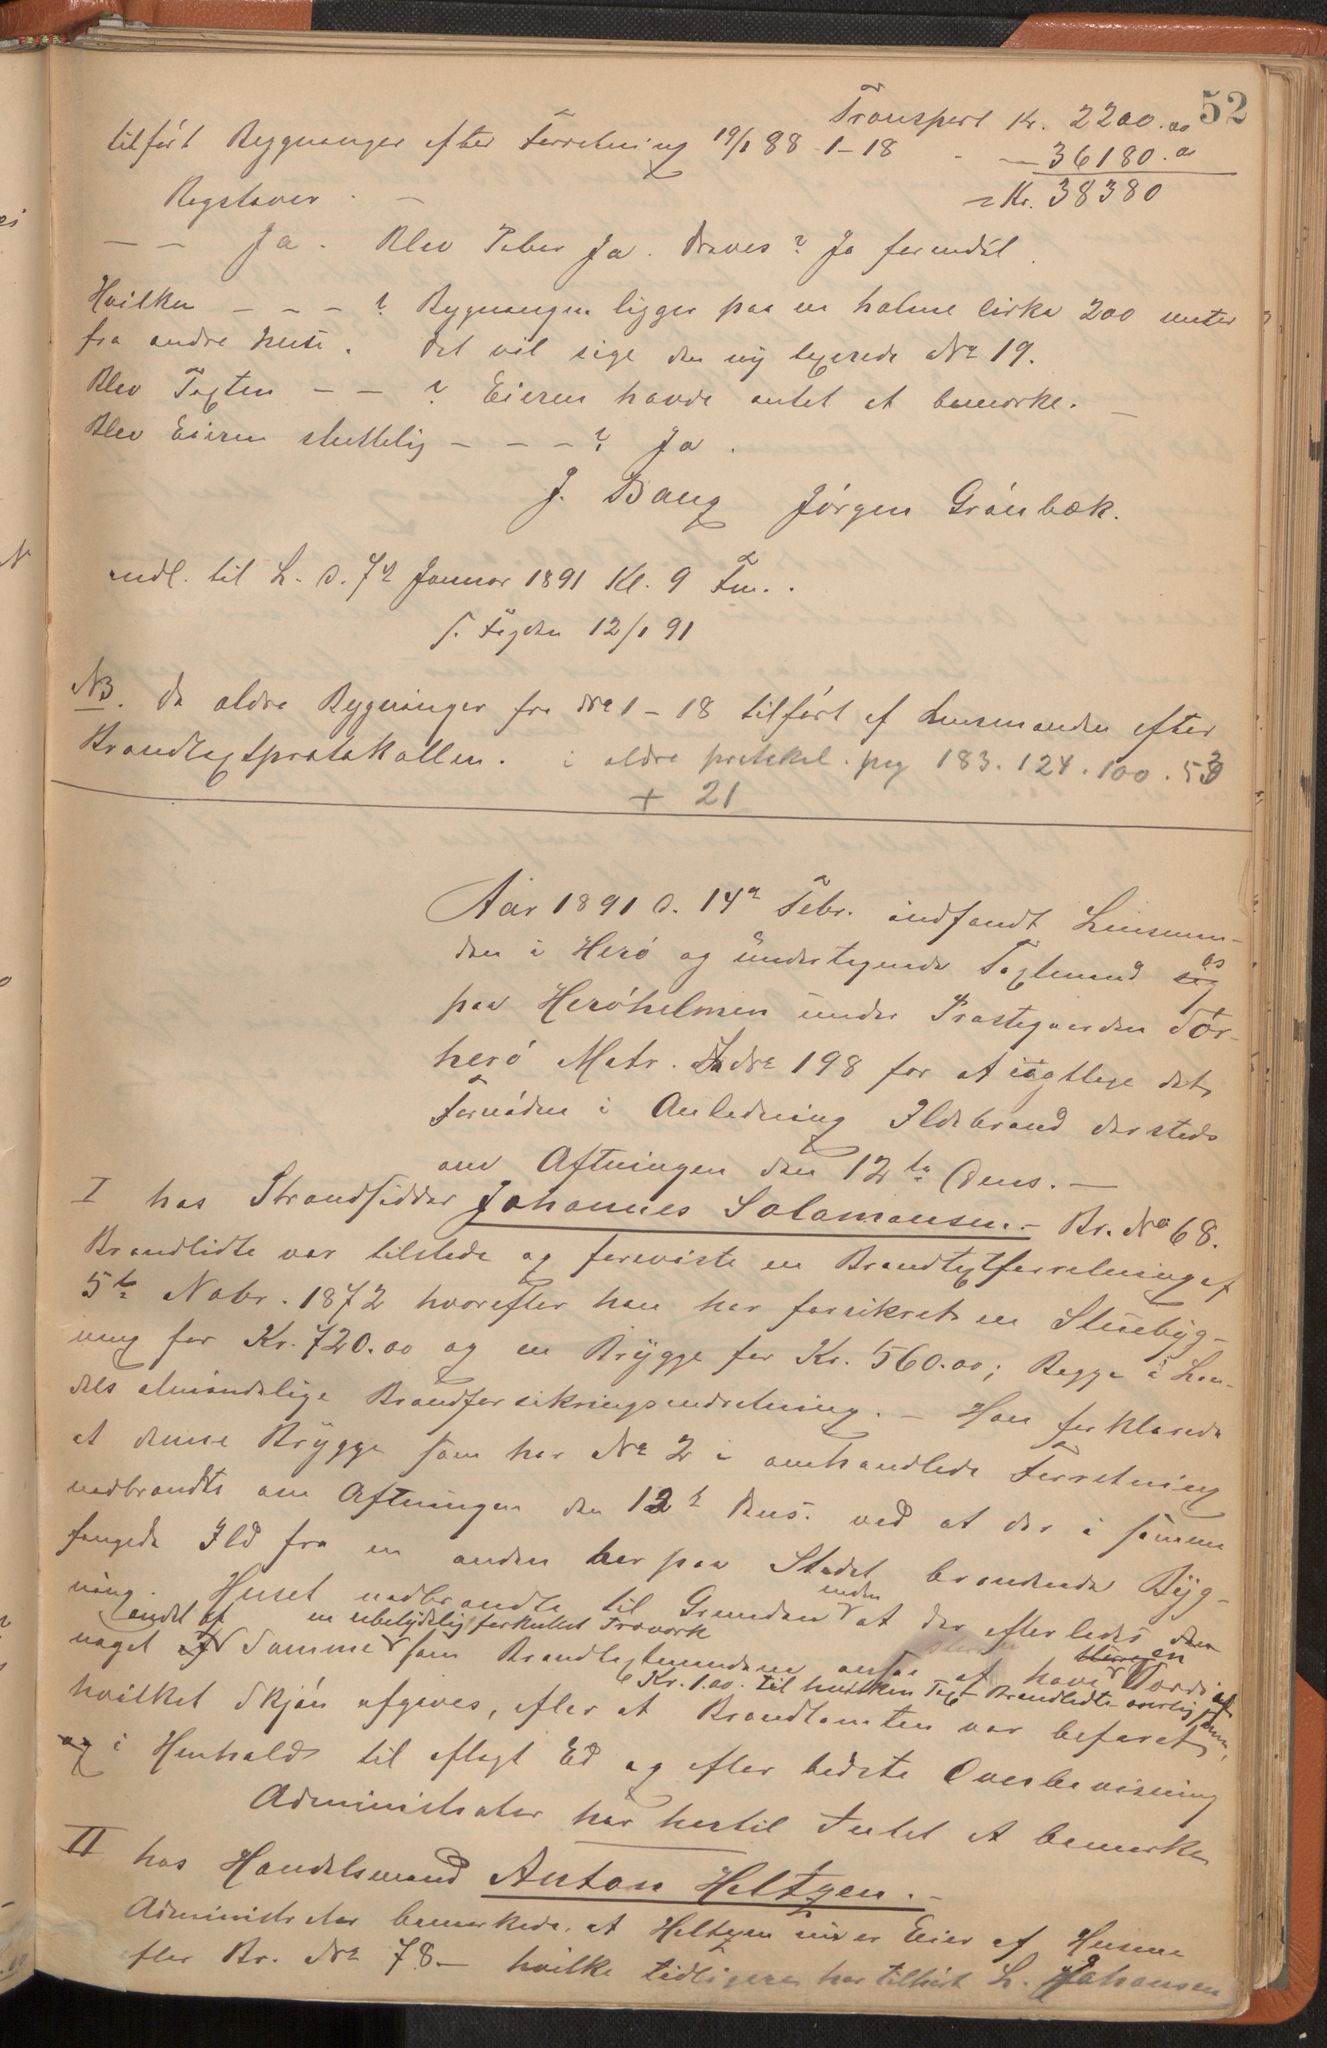 52
Transport Kr. 2200.00
tilført Bygninger efter Forretning 19/1 88 1-18 - — 36180.0
Bogstaver . — = Kr. 38380
— — Ja. Blev Peber Ja. Prøves? Ja forendil.
Hvilken — — — ? Bygningen ligger paa en holme cirka 200 meter
fra andre huse. Det vil sige den ny taxerede No 19.
Blev Taxten — — ? Eieren havde intet at bemærke. —
Blev Eieren sluttelig — — — ? Ja.
J. Bang Jørgen Grønbæk.
indl. til L. d. 7de Januar 1891 Kl. 9 Fm..
s. Fogden 12/1 91
NB. De ældre Bygninger fra No 1-18 tilført af Lensmanden efter
Brandtaxtprotokollen. i ældre protokol pag 183. 124. 100. 53
+ 21
Aar 1891 d. 14de Febr. indfandt Lensman-
den i Herø og undertegnede Taxtmænd sig os
paa Herøholmen under Præstegaarden Sør-
herø Matr. No 198 for at iagttage det
Fornødne i Anledning Ildebrand dersteds
om Aftningen den 12te Dens. —
I hos Strandsidder Johannes Salamonsen. - Br. No 68.
Brandlidte var tilstede og foreviste en Brandtaxtforretning af
5te Nobr. 1872 hvorefter han har forsikret en Stuebyg-
ning for Kr. 720.00 og en Brygge for Kr. 560.00; Begge i Lan-
dets almindelige Brandforsikringsindretning. — Han forklarede
at denne Brygge som har No 2 i omhandlede Forretning
nedbrændte om Aftningen den 12te Dens. ved at der i samme
fangede Ild fra en anden her paa Stedet brændende Byg-
ning. Huset nedbrændte til Grunden uden at der efterlodes
andet af en ubetydelig forkullet Træværk
noget af Samme som Brandtaxtmændene ansaa at have en Værdi af
Kr. 1.00. til hvilken Taxt Brandlidte overlig
hvilket Skjøn afgives, efter at Brandtomten var befaret,
og i Henhold til aflagt Ed og efter bedste Overbevisning
Administrator har hertil Intet at bemærke
II hos Handelsmand Anton Heltzen. —
Administrator bemærkede at Heltzen nu er Eier af Husene
efter Br. No 78 — hvilke tidligere har tilhørt L. Johansen